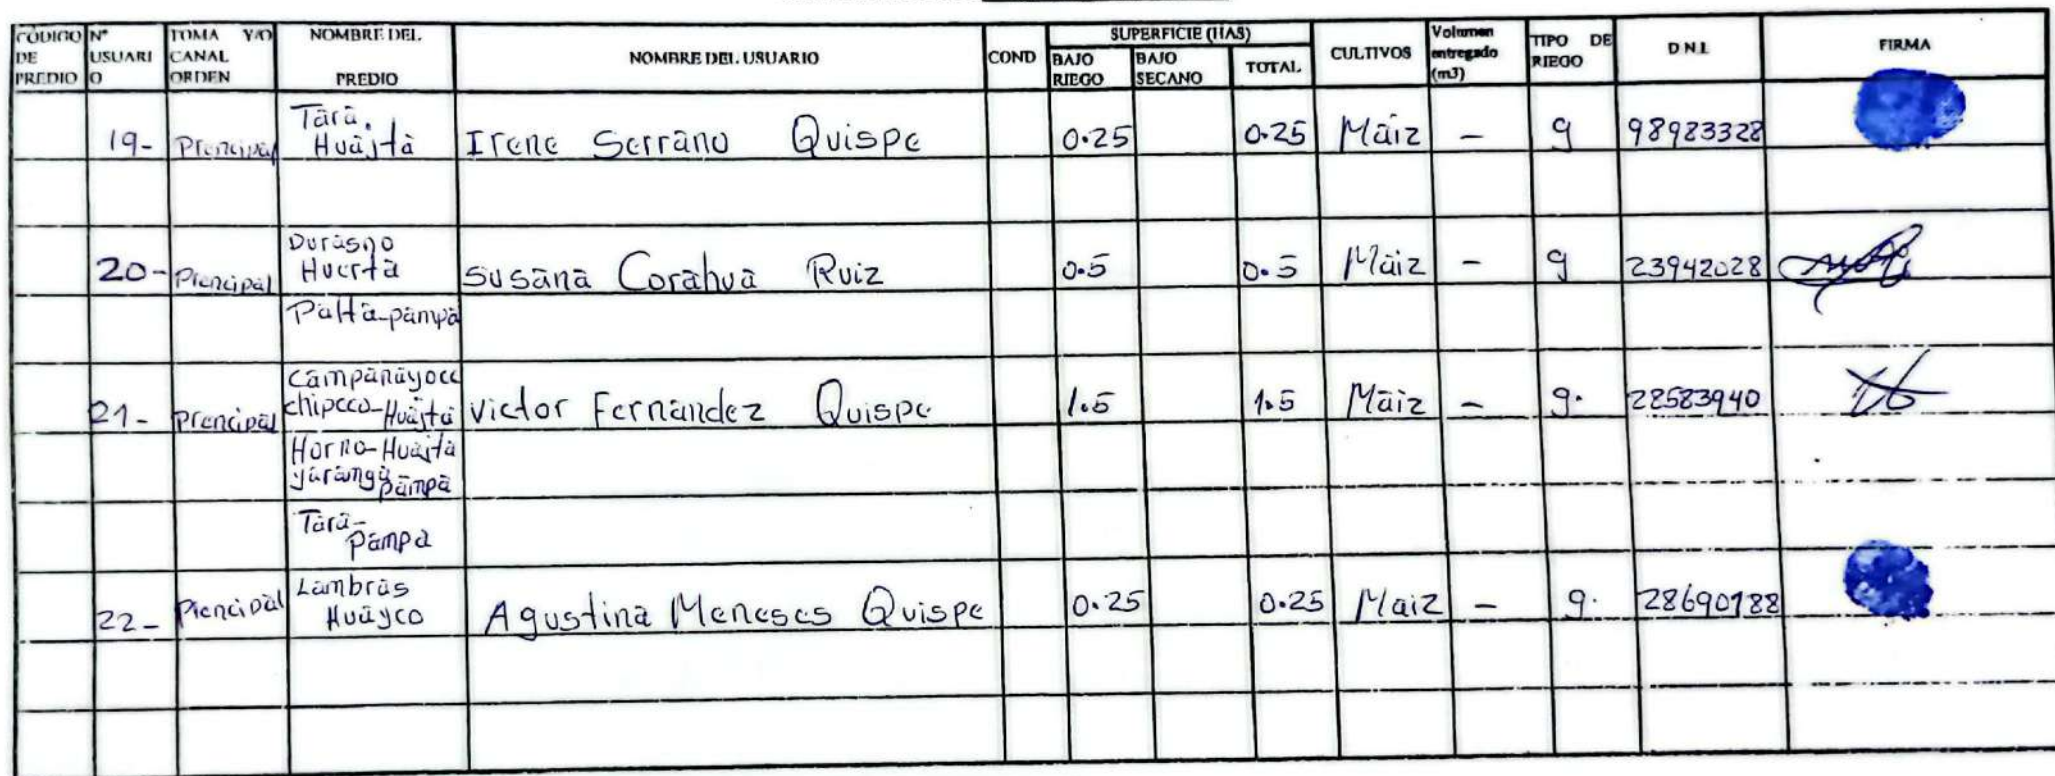 CÓDIGO DE PREDIO | N° USUARIO | TOMA Y/O CANAL ORDEN | NOMBRE DEL PREDIO | NOMBRE DEL USUARIO | COND | SUPERFICIE (HAS) BAJO RIEGO | BAJO SECANO | TOTAL | CULTIVOS | Volumen entregado (m3) | TIPO DE RIEGO | D N.I. | FIRMA
19- Prencipal Tara. Huajta Irene Serrano Quispe 0.25 0.25 Maiz - g 98983328
20- Prencipal Durasno Huerta Susana Corahua Ruiz 0.5 0.5 Maiz - g 23942028
Palta-pampa
21- Prencipal Campanayocc chipcco-Huajta Victor Fernandez Quispe 1.5 1.5 Maiz - g. 22583940
Horno-Huajta
yaranga pampa
Tara-pampa
22- Prencipal Lambras Huayco Agustina Meneses Quispe 0.25 0.25 Maiz - g. 28690188